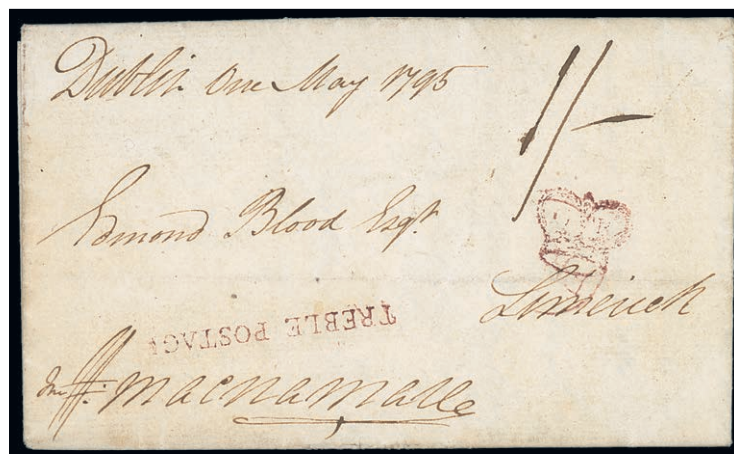 Dublin One May 1795
1/-
Edmond Blood Esqr.
Limerick
TREBLE POSTAGE
Macnamara